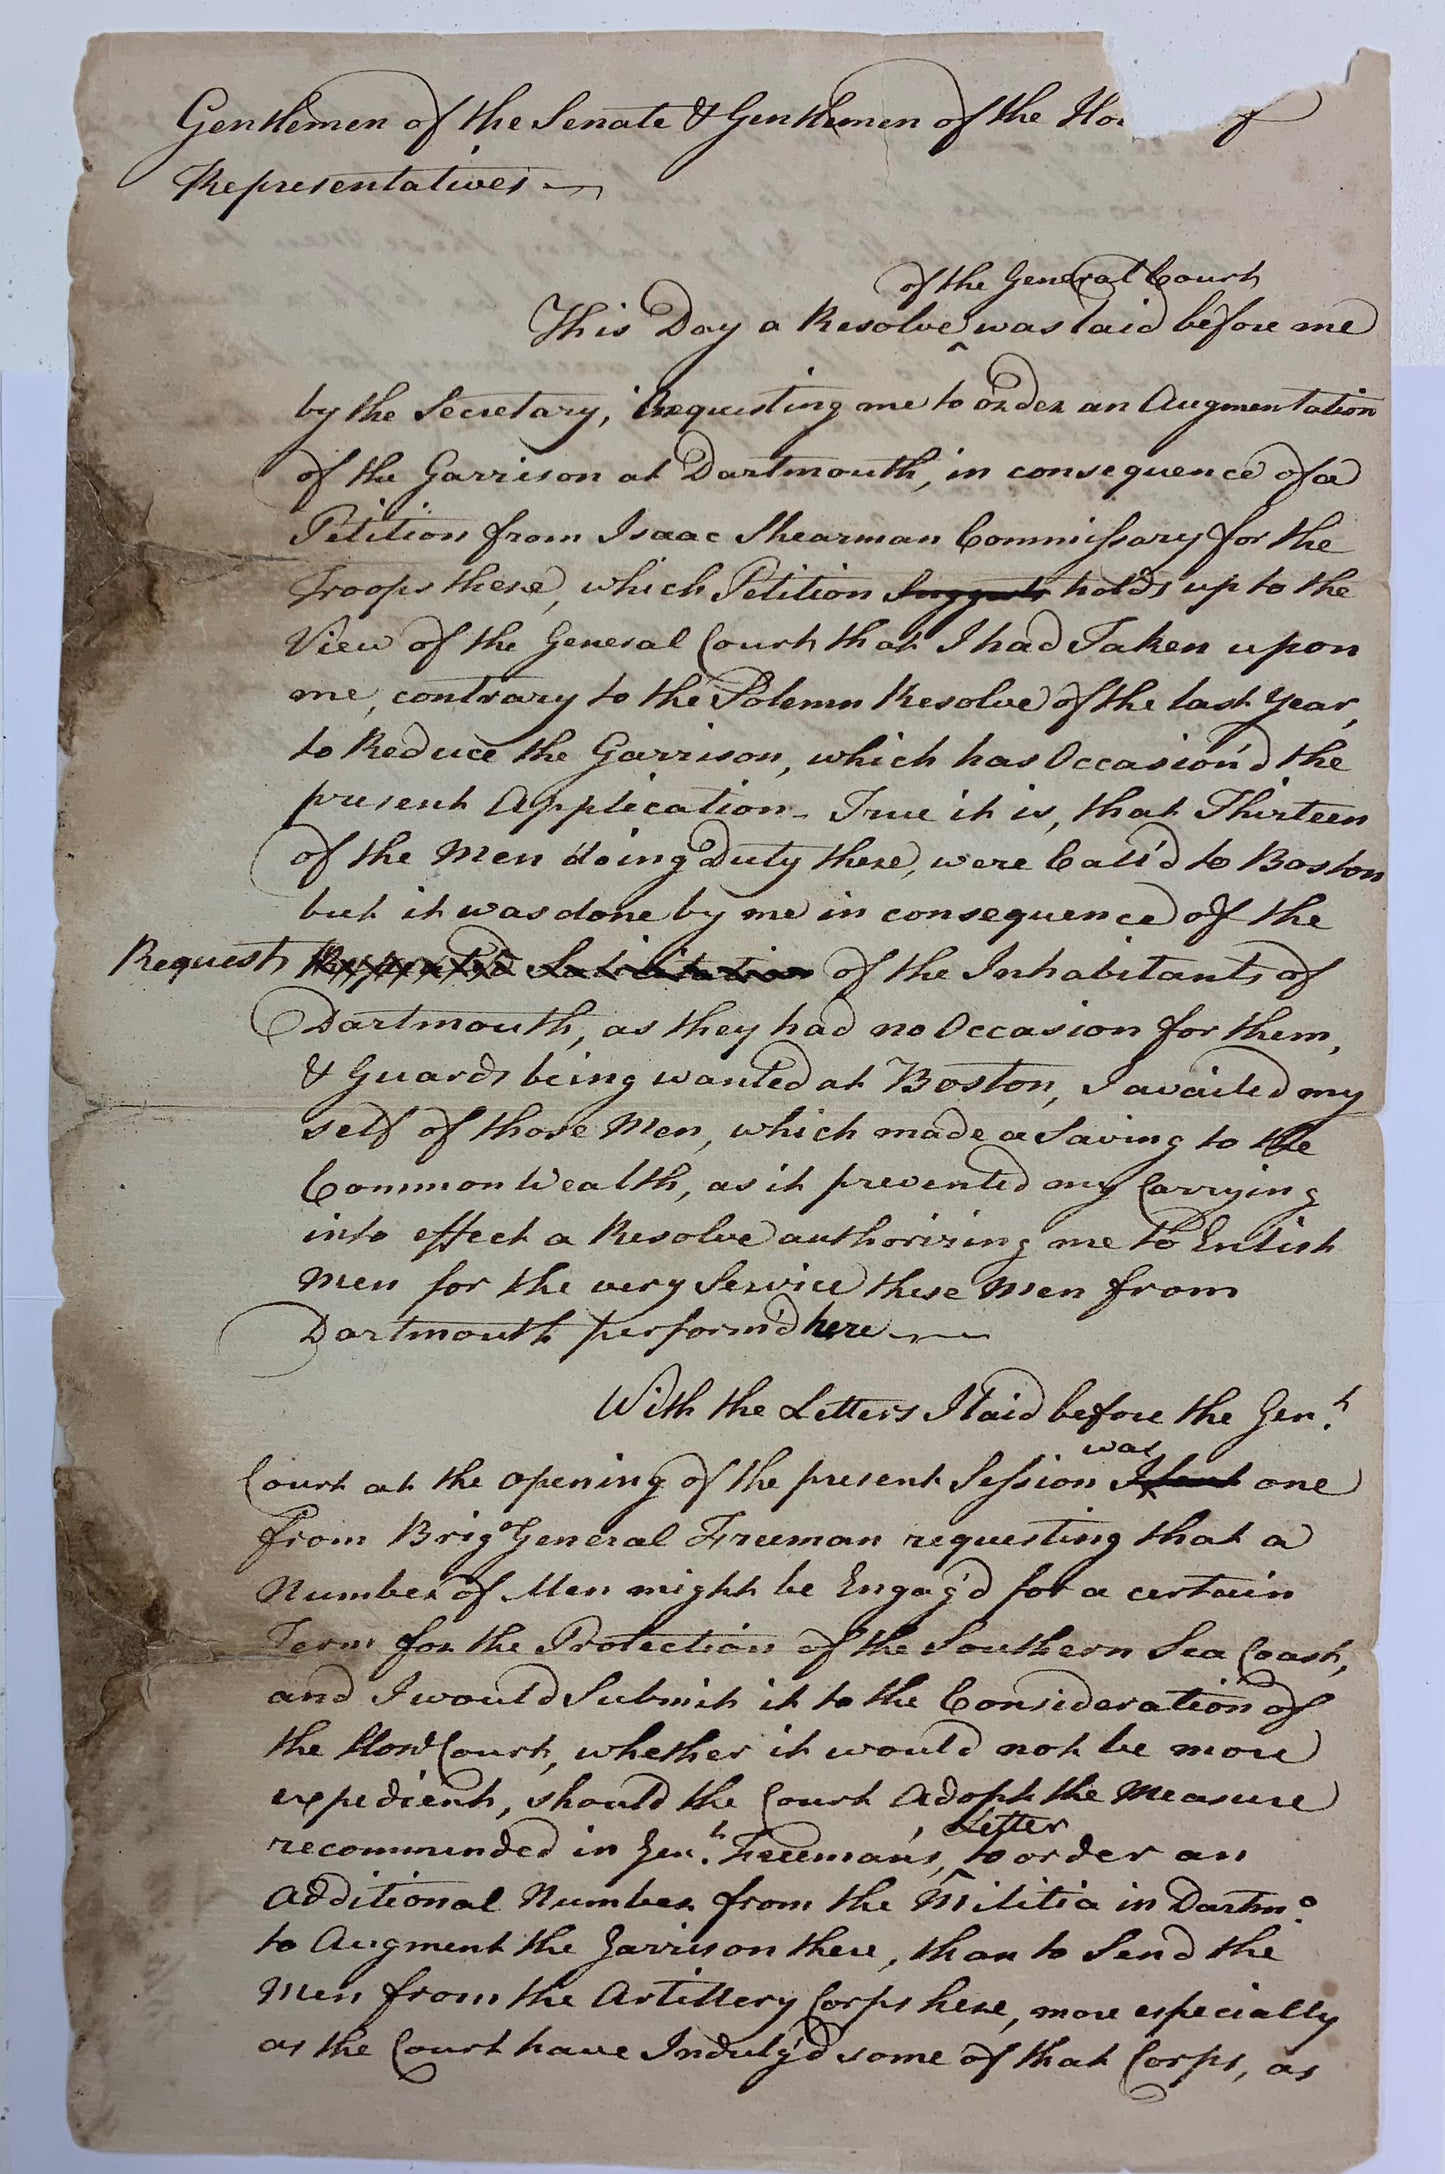 Gentlemen of the Senate & Gentlemen of the Ho f
Representatives
of the General Court
This Day a Resolve was laid before me
by the Secretary, Requesting me to order an Augmentation
of the Garrison at Dartmouth, in consequence of a
Petition from Isaac Shearman Commissary for the
Troops there, which Petition Suggests holds up to the
View of the General Court that I had Taken upon
me, contrary to the Solemn Resolve of the last Year,
to Reduce the Garrison, which has Occasion'd the
present Application - True it is, that Thirteen
of the Men doing Duty there, were Call'd to Boston
but it was done by me in consequence of the
Request Repeated Solicitation of the Inhabitants of
Dartmouth, as they had no Occasion for them,
& Guards being wanted at Boston, I availed my
self of those Men, which made a Saving to the
Common Wealth, as it prevented my Carrying
into effect a Resolve authorising me to Enlist
Men for the very Service these Men from
Dartmouth perform'd here
With the Letters I laid before the Gen.l
was
Court at the opening of the present Session I sent one
from Brigr General Freeman requesting that a
Number of Men might be Engag'd for a certain
Term for the Protection of the Southern Sea Coast,
and I would Submit it to the Consideration of
the Honl Court, whether it would not be more
expedient, should the Court Adopt the Measure
Letter
recommended in Gen.l Freeman's, to order an
Additional Number from the Militia in Dartmo
to Augment the Garrison there, than to Send the
Men from the Artillery Corps here, more especially
as the Court have Indulg'd some of that Corps, as